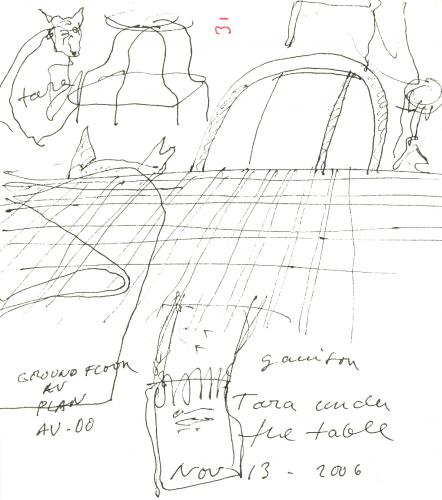 31
tara
GROUND FLOOR
AV
PLAN
AV-00
garrison
Tara under
the table
Nov 13 - 2006